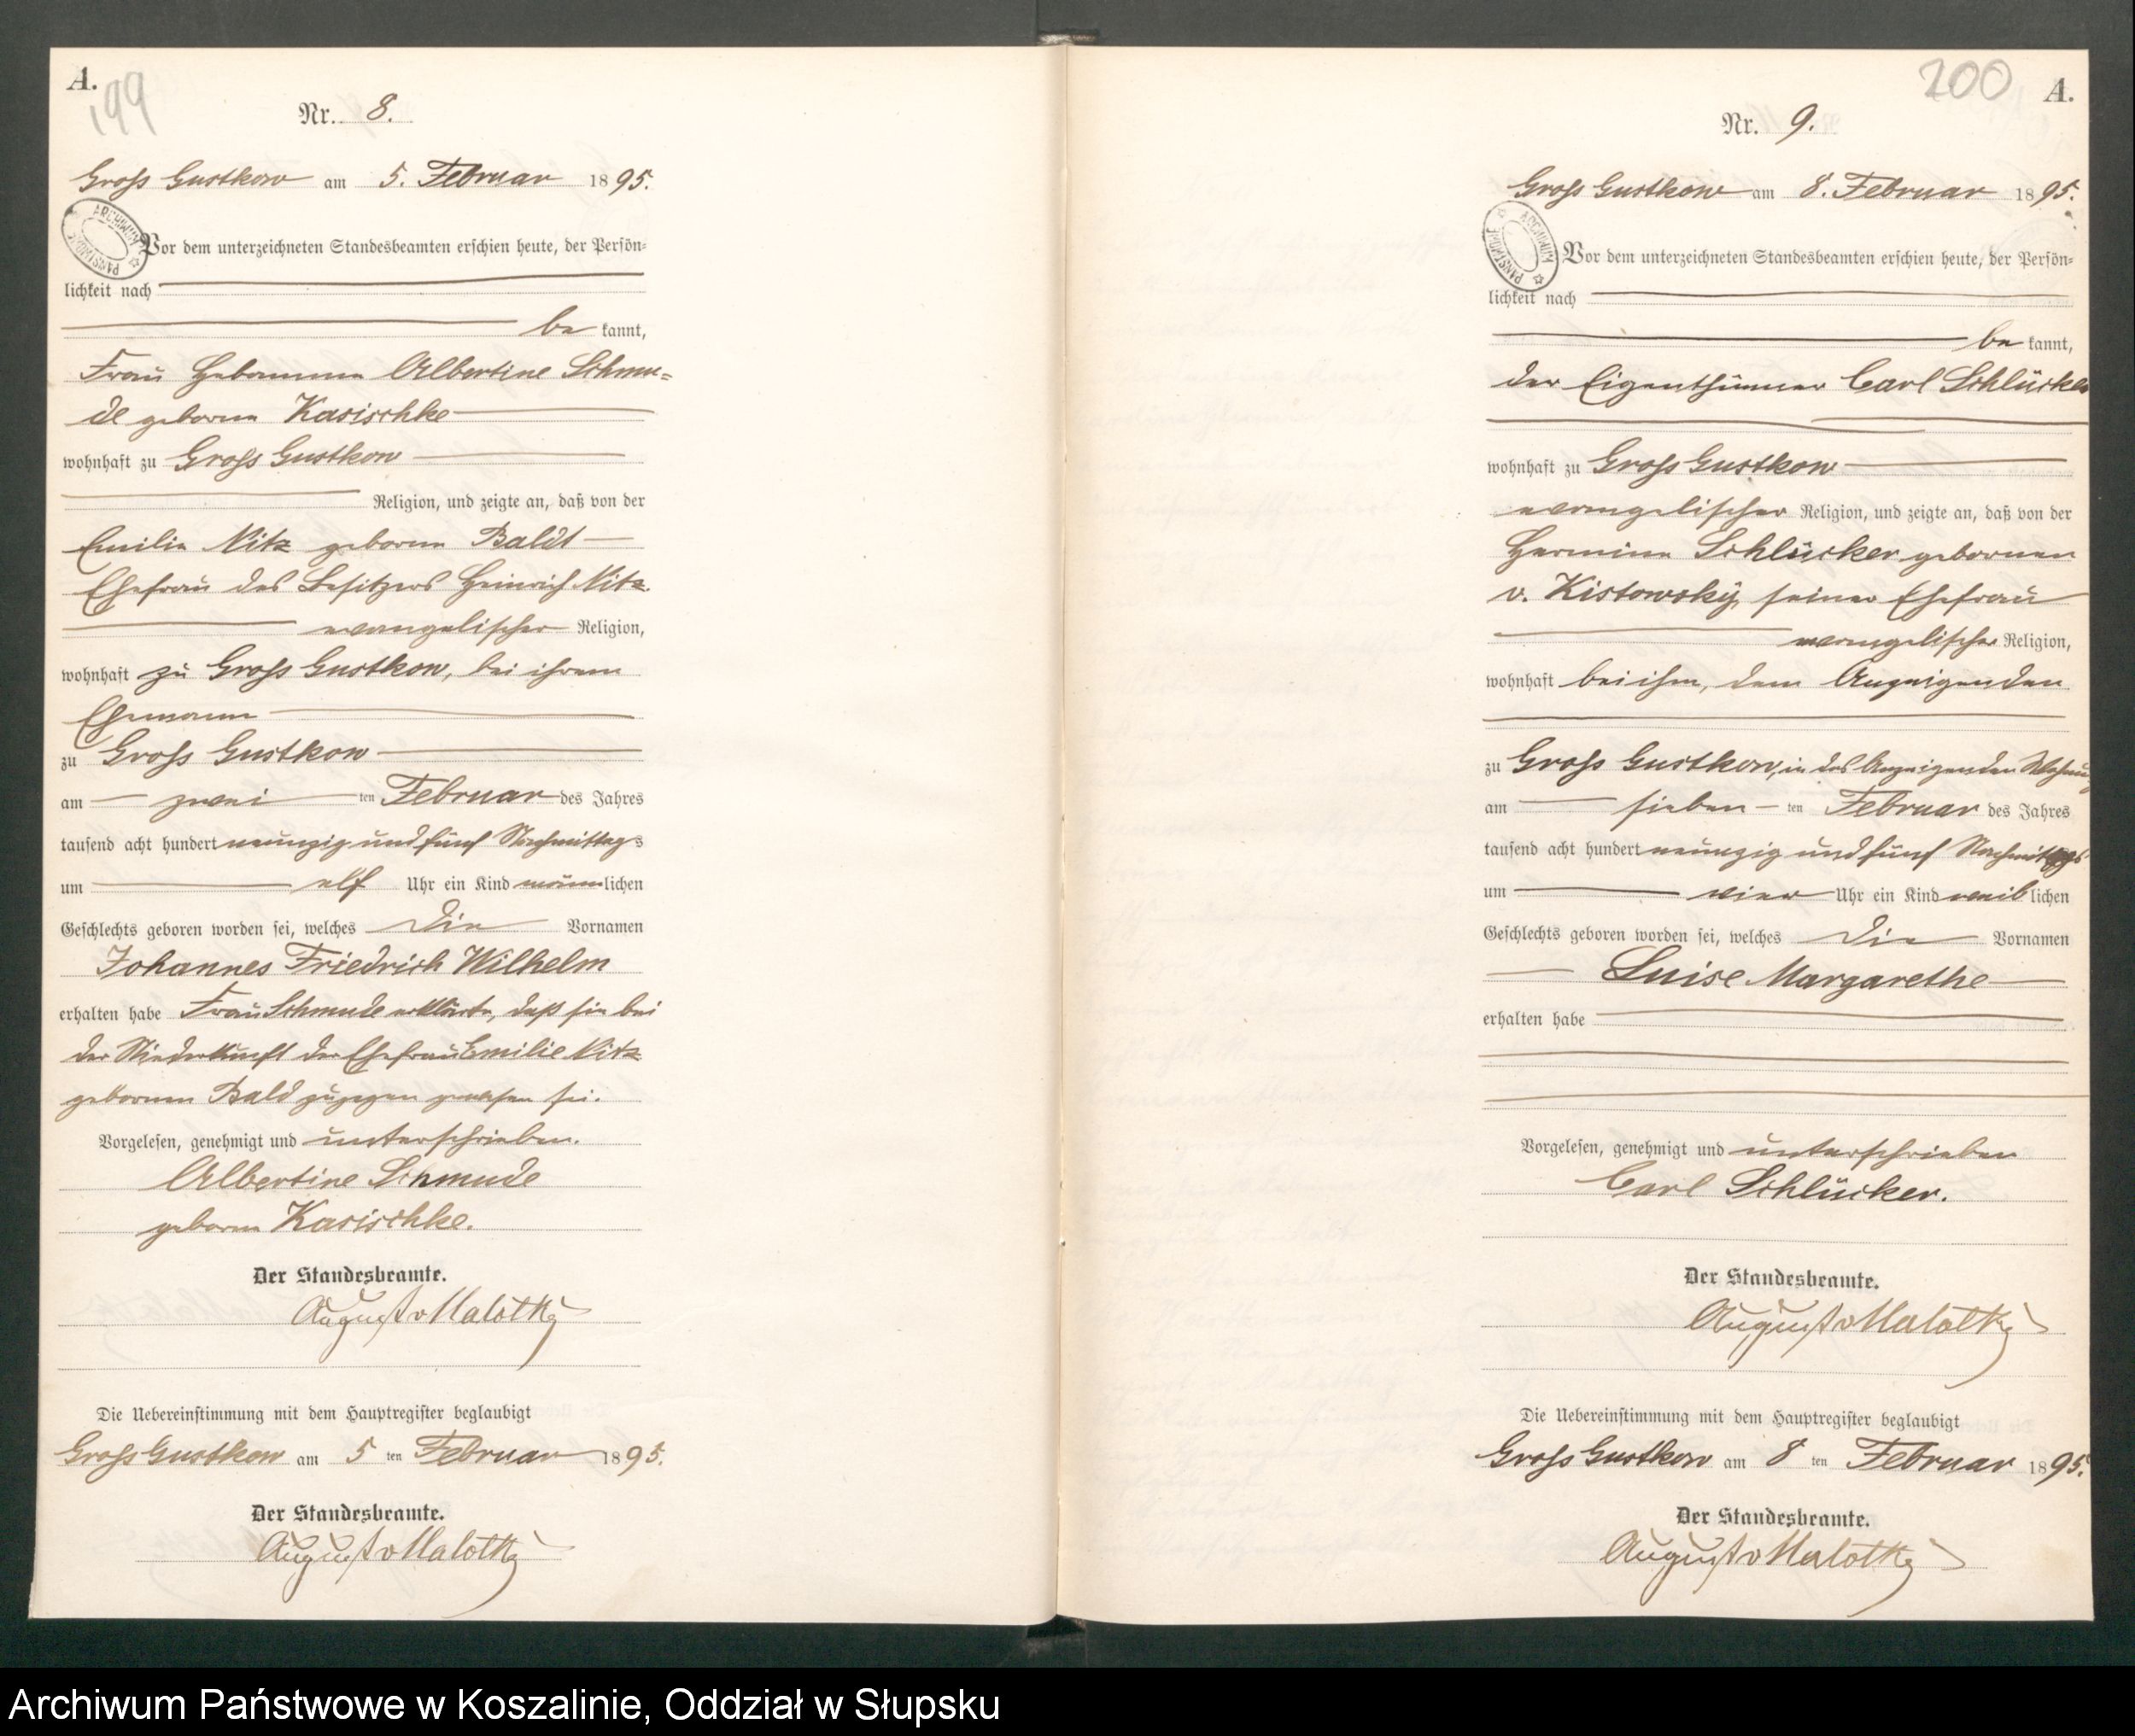 A.
199
Nr. 8.
Gross Gustkow am 5. Februar 1895.
ARCHIWUM PAŃSTWOWE
Vor dem unterzeichneten Standesbeamten erschien heute, der Persön-
lichkeit nach
be kannt,
Frau Hebamme Albertine Schmu=
de geborne Kasischke
wohnhaft zu Gross Gustkow
Religion, und zeigte an, daß von der
Emilie Nitz geborne Baldt
Ehefrau des Besitzers Heinrich Nitz
evangelischer Religion,
wohnhaft zu Gross Gustkow, bei ihrem
Ehemann
zu Gross Gustkow
am zwei ten Februar des Jahres
tausend acht hundert neunzig und fünf Nachmittags
um elf Uhr ein Kind männlichen
Geschlechts geboren worden sei, welches die Vornamen
Johannes Friedrich Wilhelm
erhalten habe Frau Schmude erklärte, daß sie bei
der Niederkunft der Ehefrau Emilie Nitz
gebornen Bald zugegen gewesen sei.
Vorgelesen, genehmigt und unterschrieben.
Albertine Schmude
geborne Kasischke.
Der Standesbeamte.
August v Malottky
Die Uebereinstimmung mit dem Hauptregister beglaubigt
Gross Gustkow am 5 ten Februar 1895.
Der Standesbeamte.
August v Malottky
200 A.
Nr. 9.
Gross Gustkow am 8. Februar 1895.
ARCHIWUM PAŃSTWOWE
Vor dem unterzeichneten Standesbeamten erschien heute, der Persön-
lichkeit nach
be kannt,
der Eigenthümer Carl Schlücker
wohnhaft zu Gross Gustkow
evangelischer Religion, und zeigte an, daß von der
Hermine Schlücker gebornen
v. Kistowsky, seiner Ehefrau
evangelischer Religion,
wohnhaft bei ihm, dem Anzeigenden
zu Gross Gustkow, in des Anzeigenden Wohnung
am sieben ten Februar des Jahres
tausend acht hundert neunzig und fünf Nachmittags
um vier Uhr ein Kind weiblichen
Geschlechts geboren worden sei, welches die Vornamen
Luise Margarethe
erhalten habe
Vorgelesen, genehmigt und unterschrieben
Carl Schlücker.
Der Standesbeamte.
August v Malottky
Die Uebereinstimmung mit dem Hauptregister beglaubigt
Gross Gustkow am 8 ten Februar 1895.
Der Standesbeamte.
August v Malottky
Archiwum Państwowe w Koszalinie, Oddział w Słupsku